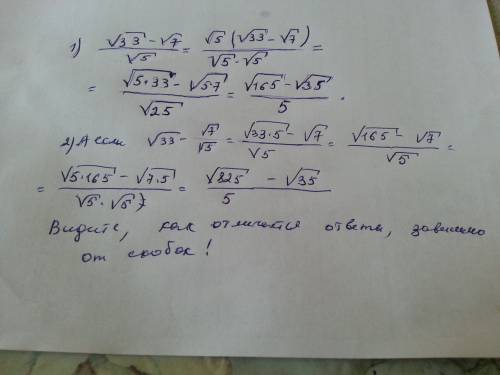 1) (√33 − √7)/√5 = √5 (√33 − √7)/(√5 · √5) =
= (√5·33 − √5·7)/√25 = (√165 − √35)/5 .
2) А если √33 − √7/√5 = (√33·5 − √7)/√5 = (√165 − √7)/√5 =
= (√5·165 − √7·5)/(√5 · √5) = (√825 − √35)/5
Видите, как отличаются ответы, зависимо
от скобок!